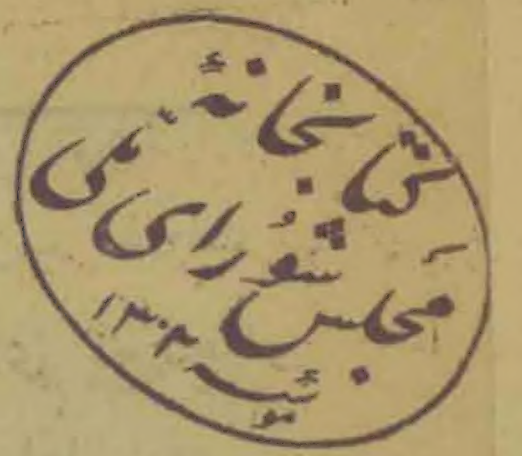 کتابخانهٔ
مجلس شورای ملی
مؤسسه ۱۳۰۲